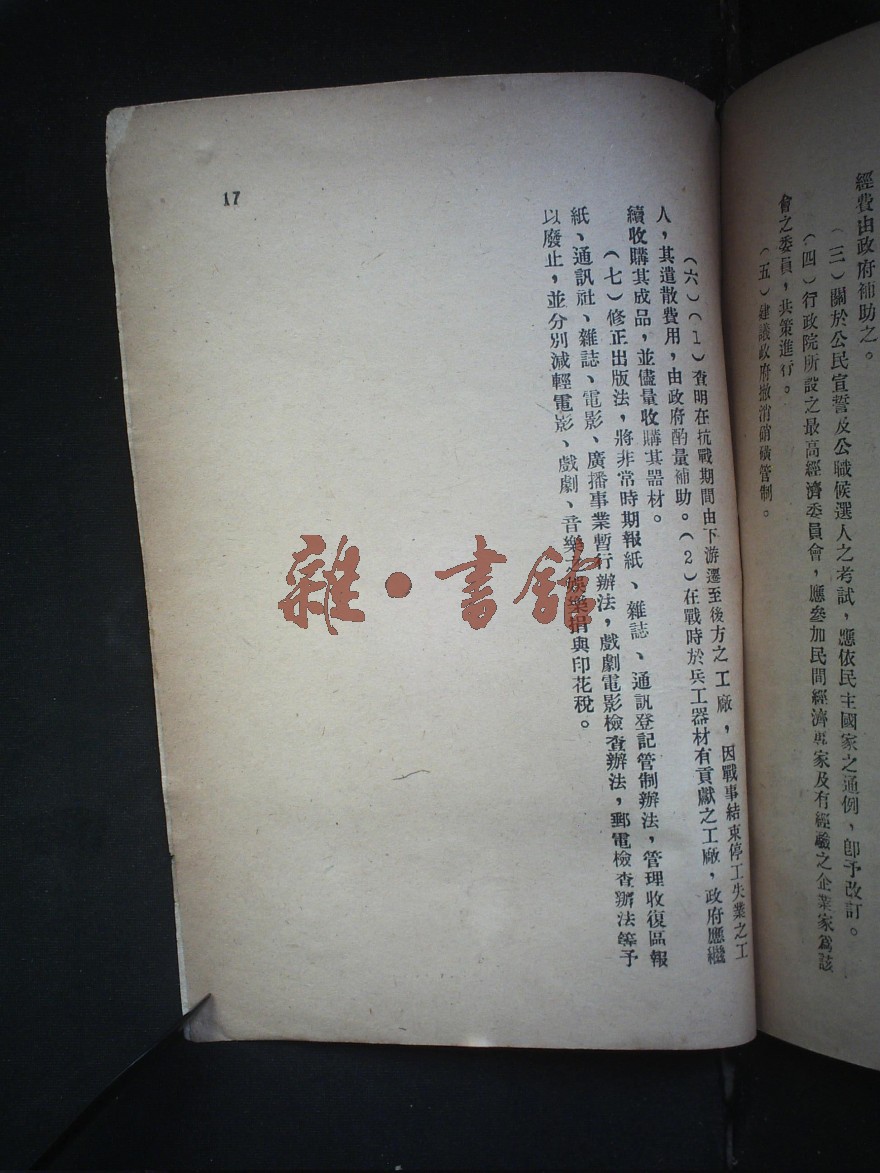 經費由政府補助之。
（三）關於公民宣誓及公職候選人之考試，應依民主國家之通例，卽予改訂。
（四）行政院所設之最高經濟委員會，應參加民間經濟專家及有經驗之企業家爲該
會之委員，共策進行。
（五）建議政府撤消硝磺管制。
（六）（1）查明在抗戰期間由下游遷至後方之工廠，因戰事結束停工失業之工
人，其遣散費用，由政府酌量補助。（2）在戰時於兵工器材有貢獻之工廠，政府應繼
續收購其成品，並儘量收購其器材。
（七）修正出版法，將非常時期報紙、雜誌、通訊登記管制辦法，管理收復區報
紙、通訊社、雜誌、電影、廣播事業暫行辦法，戲劇電影檢查辦法，郵電檢查辦法等予
以廢止，並分別減輕電影、戲劇、音樂之娛樂捐與印花稅。
17
雜·書館